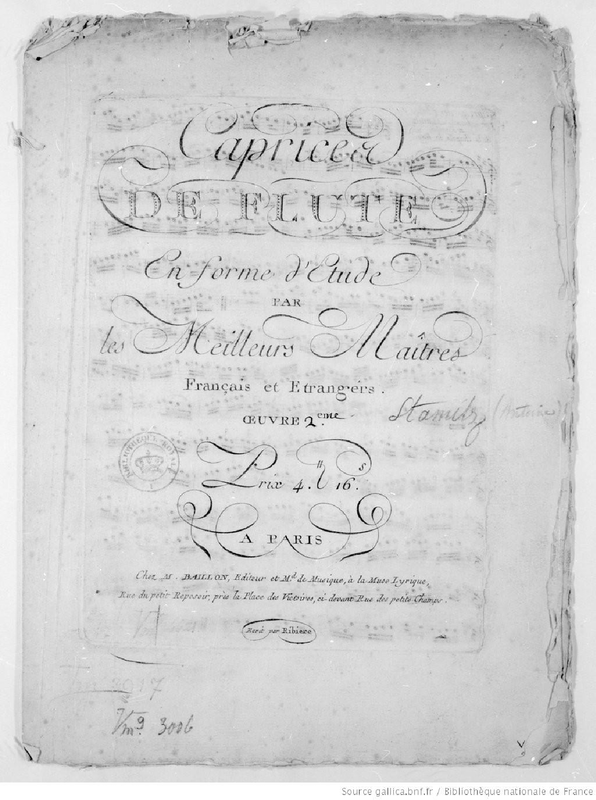 Caprices
DE FLUTE
En forme d'Etude
PAR
les Meilleurs Maîtres
Français et Etrangers.
ŒUVRE 2.eme
Stamitz (Antoine)
Prix 4.lt 16.s
A PARIS
Chez M. BAILLON, Editeur et M.d de Musique, à la Muse Lyrique,
Rue du petit Reposoir, près la Place des Victoires, ci-devant Rue des petits Champs.
Ecrit par Ribiere
Vm9. 3006
Source gallica.bnf.fr / Bibliothèque nationale de France